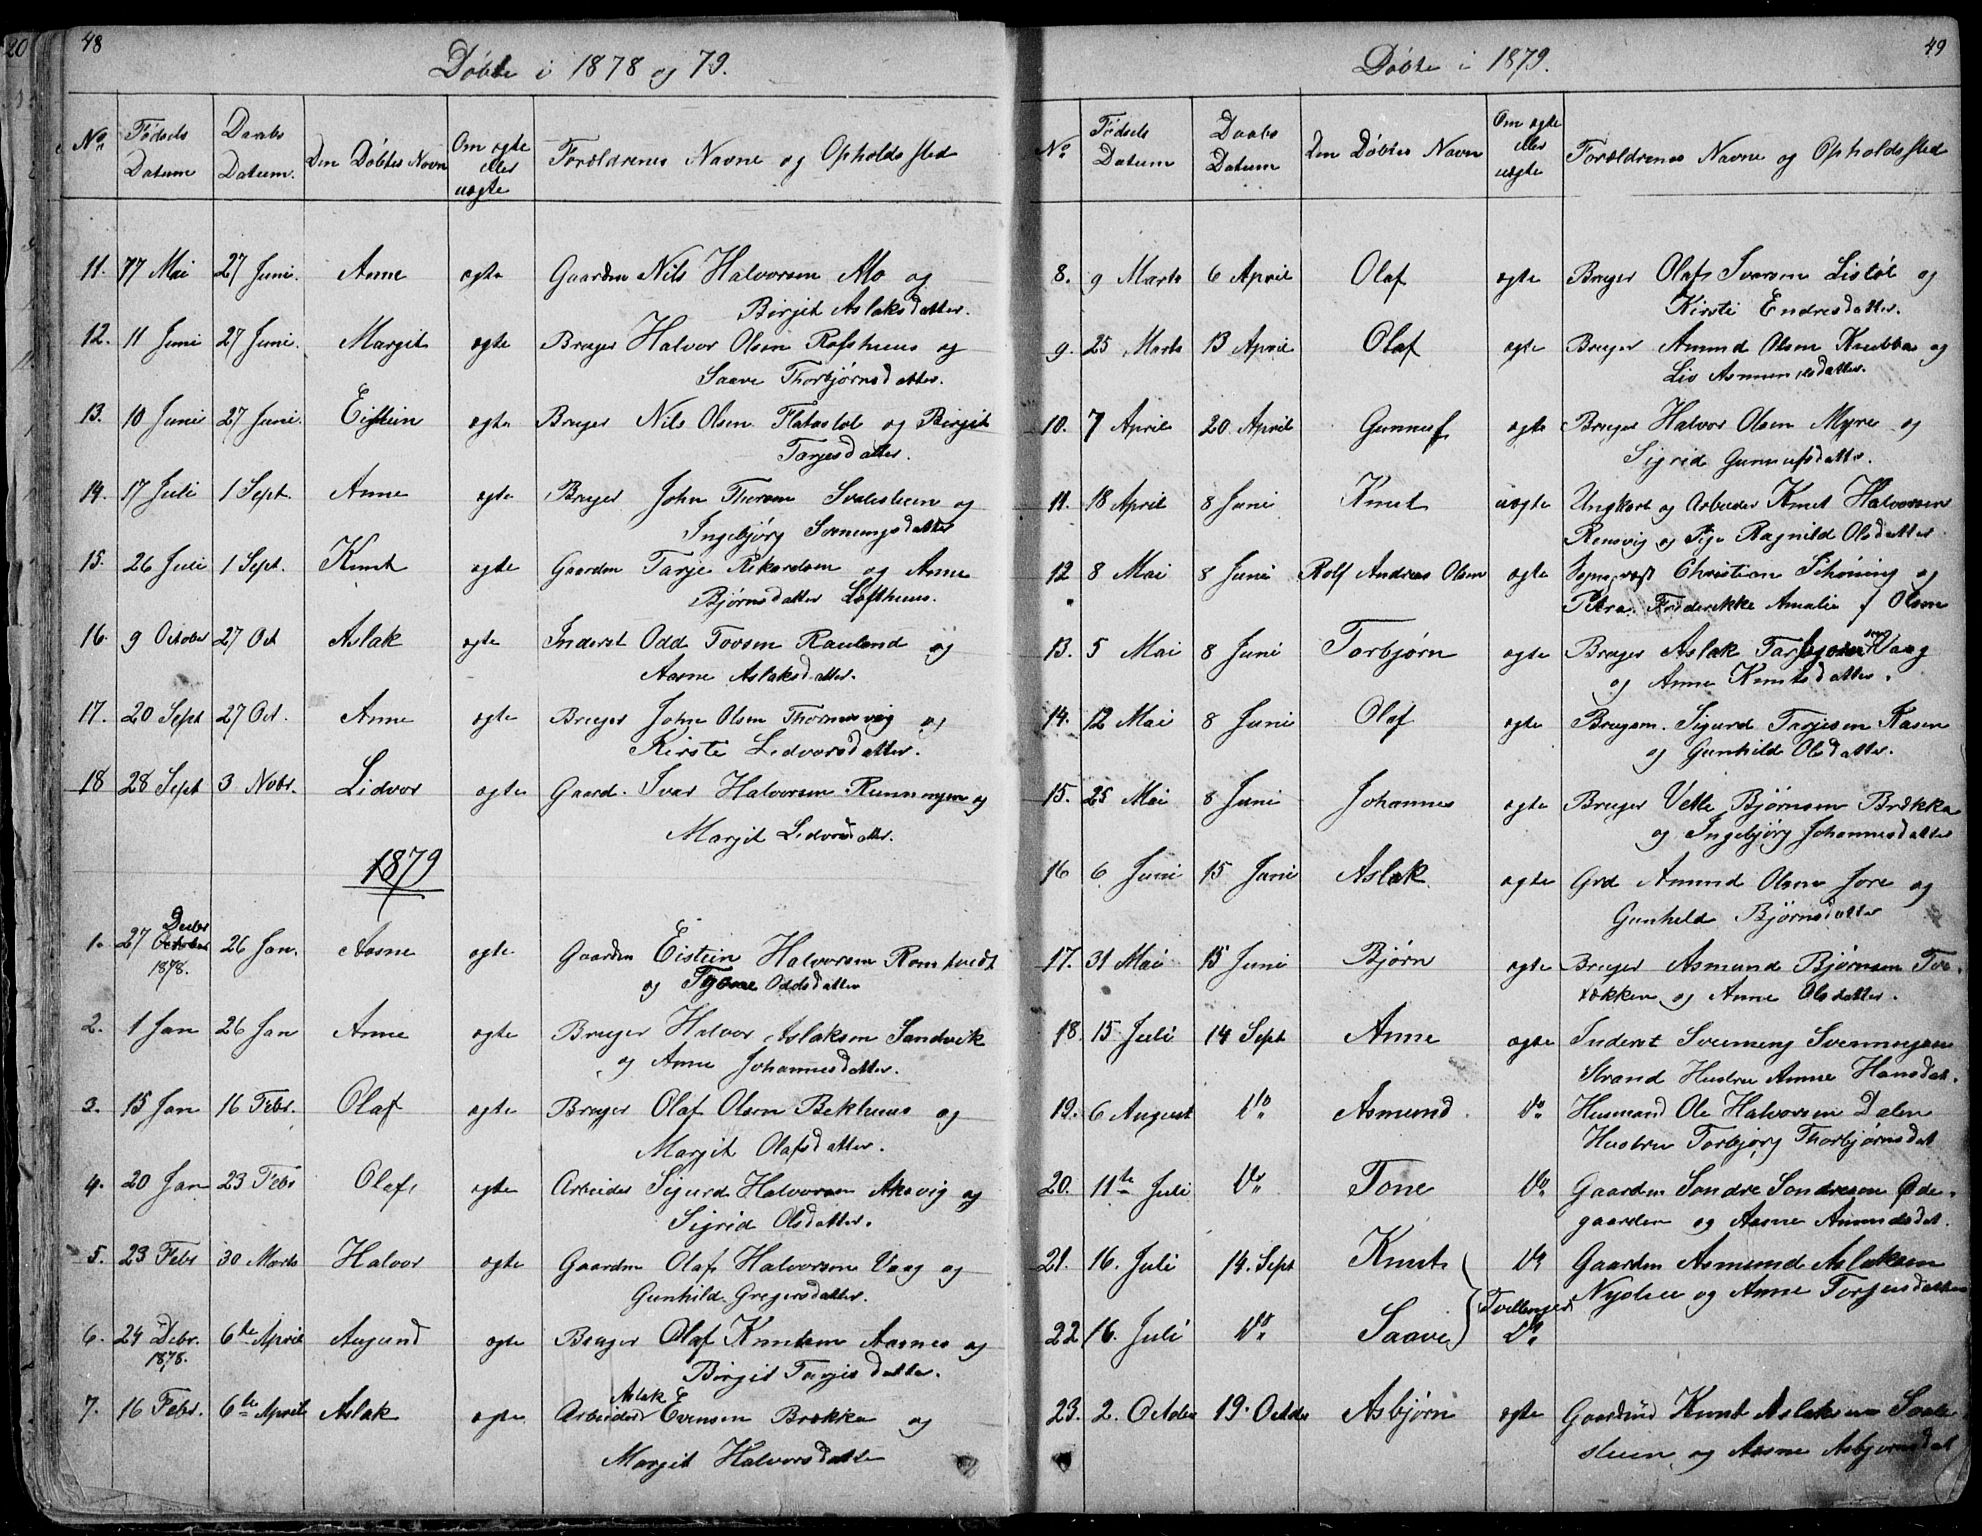 20
48
Døbte i 1878 og 79.
No. Fødsels Datum Daabs Datum. Den Døbtes Navn Om ægte eller uægte Forældrenes Navne og Opholdssted
11. 17 Mai 27 Juni. Anne ægte Gaardm Nils Halvorsen Mo og
Birgit Aslaksdatter.
12. 11 Juni 27 Juni. Margit ægte Bruger Halvor Olsen Rofshuus og
Saave Thorbjørnsdatter.
13. 10 Juni 27 Juni. Eistein ægte Bruger Nils Olsen Flatastøl og Birgit
Tarjesdatter.
14. 17 Juli 1 Sept. Anne ægte Bruger John Thorsen og
Ingebjørg Sveinungsdatter
15. 26 Juli 1 Sept. Knut ægte Gaardm Tarje Rikardsen og Anne
Bjørnsdatter Lofthuus.
16. 9 October 27 Oct Aslak ægte Inderst Odd Tovsen Rauland og
Aasne Aslaksdatter.
17. 20 Sept 27 Oct. Anne ægte Bruger John Olsen og
Kirste Lidvorsdatter.
18 28 Sept 3 Novbr. Lidvor ægte Gaard. Ivar Halvorsen Runningen og
Margit Lidvorsdatter.
1879
1. 27 Decbr October 1878. 26 Jan. Aasne ægte Gaardm Eistein Halvorsen Romtvedt
og Tyone Oddsdatter
2. 1 Jan 26 Jan Anne ægte Bruger Halvor Aslaksen Sandvik
og Anne Johannesdatter.
3. 15 Jan 16 Febr. Olaf ægte Bruger Olaf Olsen Bekhuus og
Margit Olafsdatter.
4. 20 Jan 23 Febr Olaf, ægte Arbeider Sigurd Halvorsen Aksvig og
Sigrid Olsdatter.
5. 23 Febr 30 Marts Halvor ægte Gaardm Olaf Halvorsen Vaag og
Gunhild Gregersdatter.
6. 24 Debr. 1878. 6te April Augund ægte Bruger Olaf Knutsen Aasnes og
Birgit Tarjesdatter.
7. 16 Febr. 6te April Aslak ægte Arbeider Aslak Evensen Brække og
Margit Halvorsdatter
49
Døbte i 1879.
No. Fødsels Datum Daabs Datum Den Døbtes Navn Om ægte eller uægte Forældrenes Navne og Opholdssted
8. 9 Marts 6 April Olaf ægte Bruger Olaf Ivarsen Listøl og
Kirsti Endresdatter.
9. 25 Marts 13 April Olaf ægte Bruger Amund Olsen Knubba og
Liv Asmundsdatter.
10. 7 April 20 April Gunnuf ægte Bruger Halvor Olsen Myre og
Sigrid Gunnufsdatter.
11. 18 April 8 Juni Knut uægte Ungkarl og Arbeider Knut Halvorsen
Rensvig og Pige Ragnild Olsdatter
12 8 Mai 8 Juni Rolf Andreas Olsen ægte Sognepræst Christian Schøning og
Petra Frederikke Amalie f Olsen
13. 5 Mai 8 Juni Torbjørn ægte Bruger Aslak Tarbjørnsen Vaag
og Anne Knutsdatter.
14. 12 Mai 8 Juni Olaf ægte Brugem. Sigurd Tarjesen Kasen
og Gunhild Olsdatter.
15. 25 Mai 8 Juni Johannes ægte Bruger Vetle Bjørnsen Brække
og Ingebjørg Johannesdatter
16 6 Juni 15 Juni Aslak ægte Grd Amund Olsen Jore og
Gunheld Bjørnsdatter
17. 31 Mai 15 Juni Bjørn ægte Bruger Asmund Bjørnsen
og Anne Olsdatter.
18. 15 Juli 14 Sept Anne ægte Inderst Sveinung Sveinungsen
Strand Hustru Anne Hansdat.
19. 6 August Do Asmund Do Husmand Ole Halvorsen Dalen
Hustru Torbjørg Thorbjørnsdat
20. 11te Juli Do Tone Do Gaardm Sondre Sondresen Øde-
gaarden og Aasne Amundsdat.
21. 16. Juli 14. Sept Knut Do Gaardm Asmund Aslaksen
Tvillinger Nystue og Anne Torgeirsdatter
22 16. Juli Do Saave Do
23. 2. October 19. October Asbjørn ægte Gaardmd Knut Aslaksen
og Aasne Asbjørnsdat